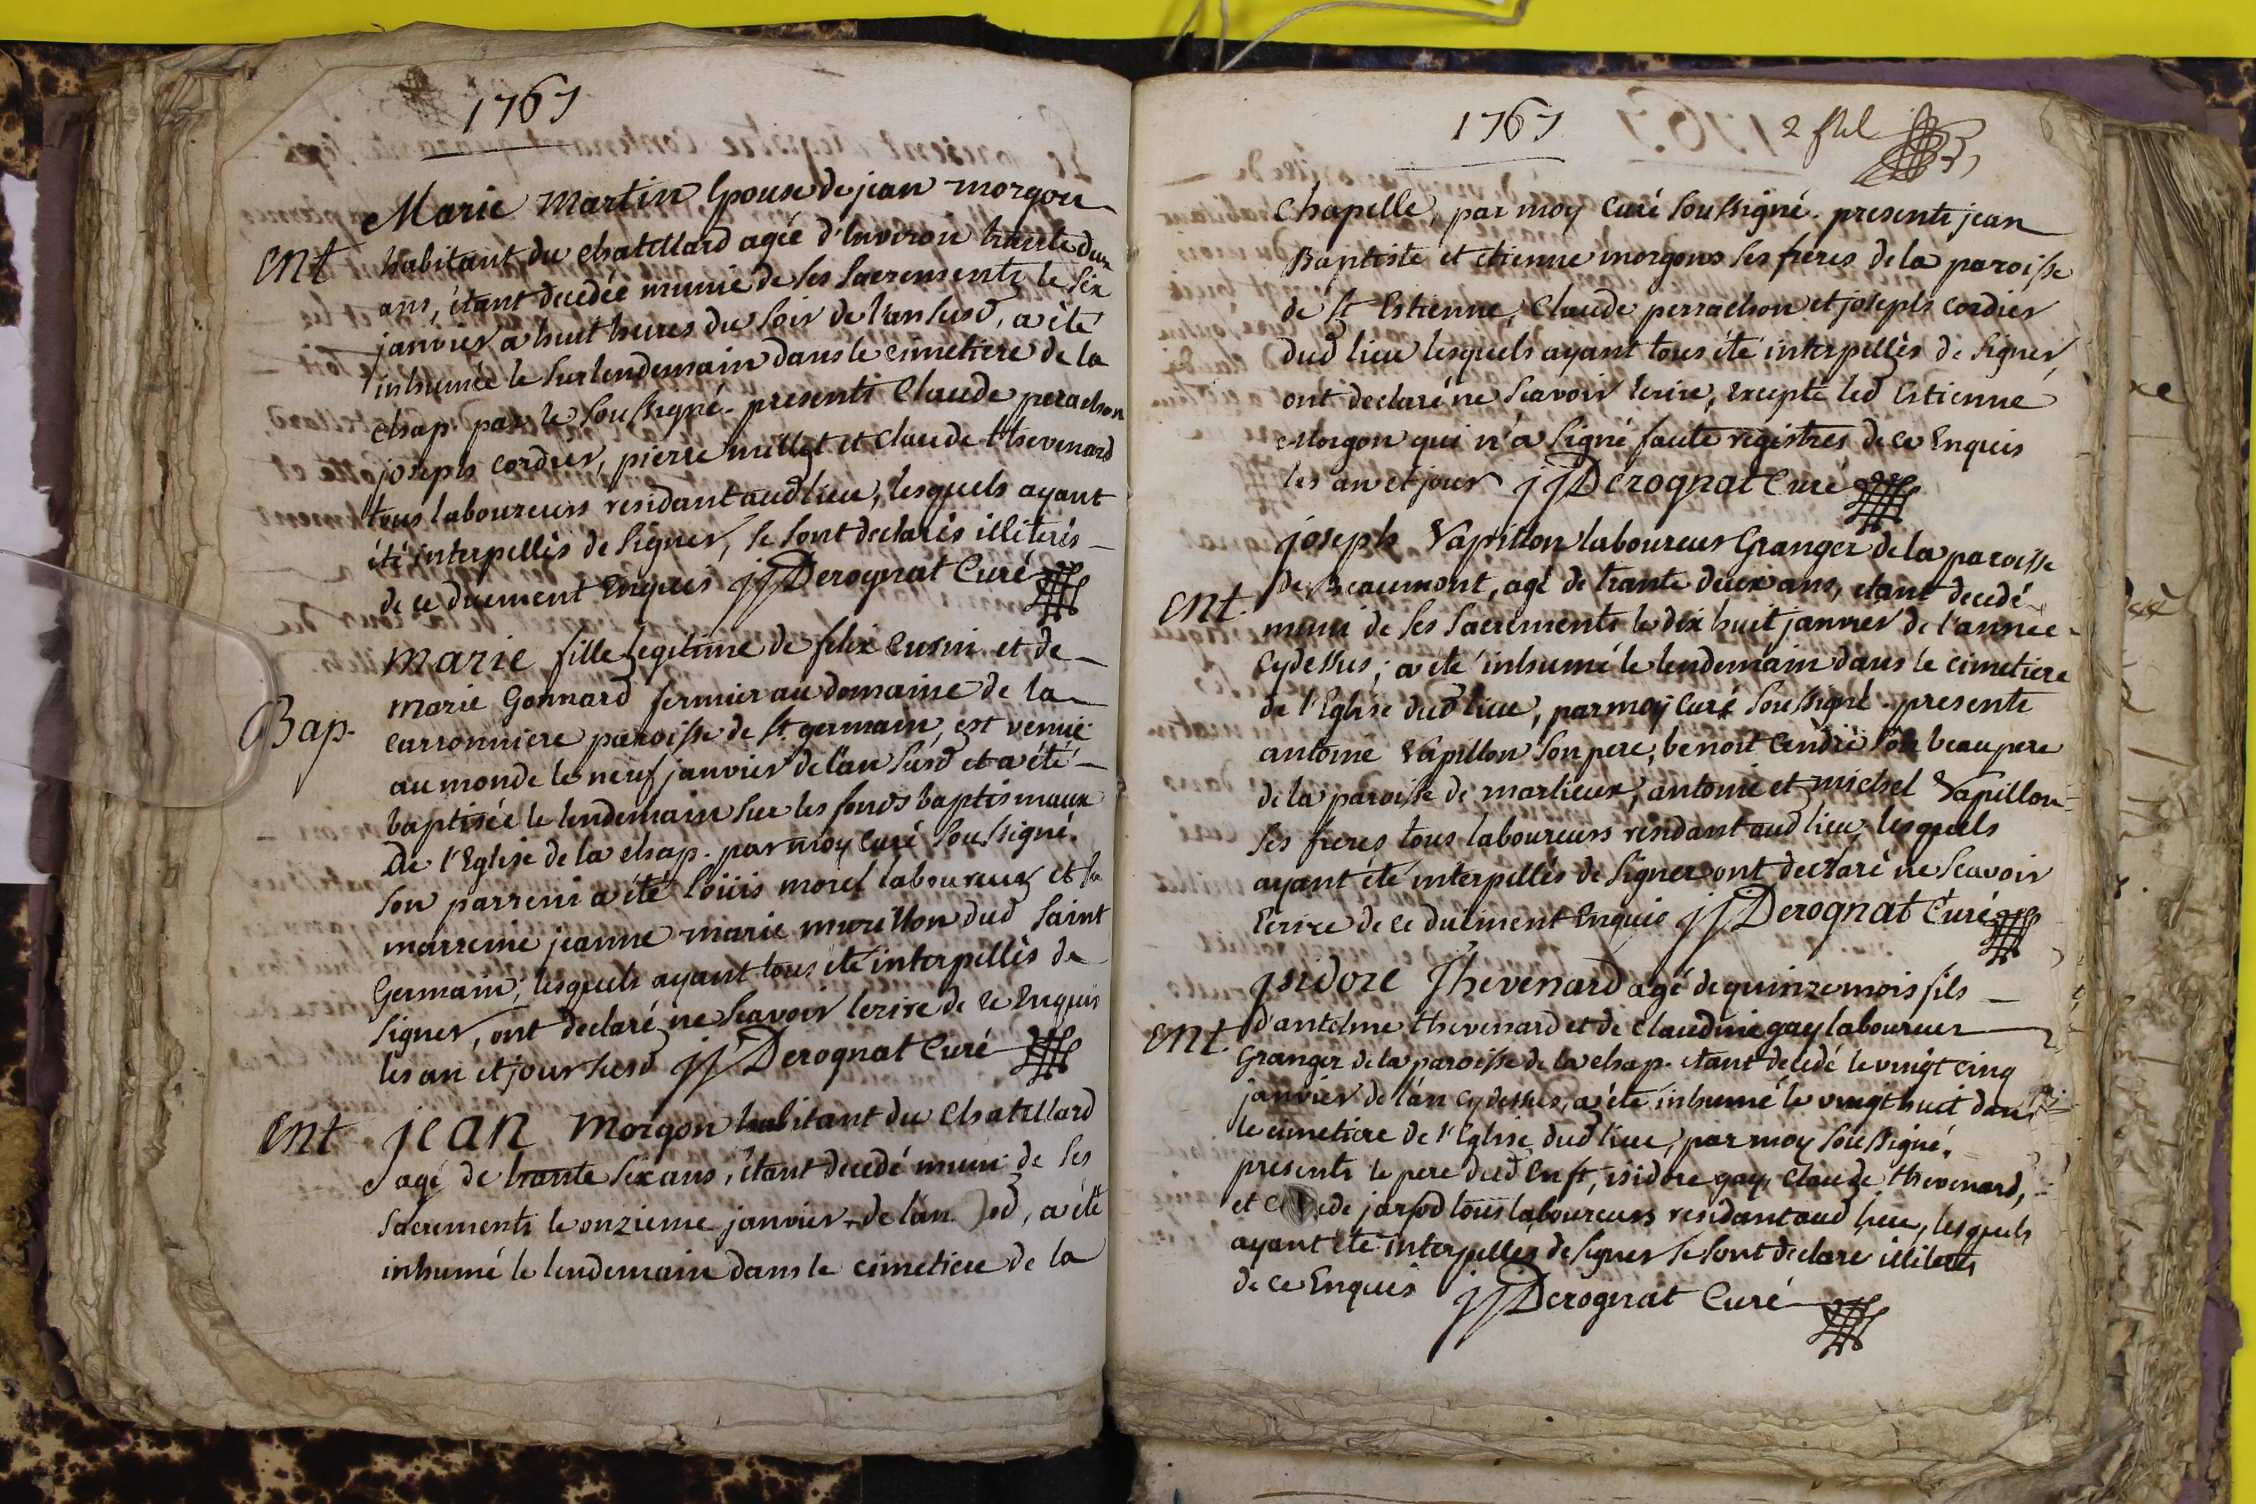 1767
Marie Martin Epouse de jean morgon
Ent habitant du chatellard agée d'Environ trante deux
ans, étant decedée munie de ses sacrements le six
janvier a huit heures du soir de l'an susd, a été
inhumée le surlendemain dans le cimetiere de la
chap. par le soussigné. presents Claude perachon
joseph cordier, pierre millet et claude thevenard
tous laboureurs residant aud lieu, lesquels ayant
été interpellés de signer, se sont declarés illiterés
de ce duement Enquis jj Derognat Curé
marie fille legitime de felix Cusin et de
Bap. marie Gonnard fermier au domaine de la
carronniere paroisse de st germain, est venüe
au monde le neuf janvier de l'an susd et a été
baptisée le lendemain sur les fonds baptismaux
de l'Eglise de la chap. par moy curé soussigné.
son parrein a été loüis morel laboureur et sa
marreine jeanne marie murillon dud saint
Germain; lesquels ayant tous été interpellés de
signer, ont declaré ne scavoir lerire de ce Enquis
les an et jour susd jj Derognat Curé
Ent jean Morgon habitant du chatellard
agé de trante six ans, étant decedé muni de ses
sacrements le onzieme janvier de l'an, a été
inhumé le lendemain dans le cimetiere de la
1767 2
chapelle, par moy curé soussigné. presents jean
Baptiste et etienne morgons ses freres de la paroisse
de st Estienne, Claude perrachon et joseph cordier
dud lieu lesquels ayant tous été interpellés de signer,
ont declaré ne scavoir lerire, excepté led Estienne
Morgon qui n'a signé faute registres de ce Enquis
les an et jour jj Derognat Curé
joseph Vapillon laboureur Granger de la paroisse
de Beaumont, agé de trante deux ans, etant decedé
Ent. muni de ses sacrements le dix huit janvier de l'année
cydessus; a été inhumé le lendemain dans le cimetiere
de l'Eglise dud lieu, par moy curé soussigné. presents
antoine Vapillon son pere, benoit Cendré son beaupere
de la paroisse de marlieux, antoine et michel Vapillon
ses freres tous laboureurs residant aud lieu, lesquels
ayant été interpellés de signer ont declaré ne scavoir
lerire de ce duement Enquis jj Derognat Curé
jsidore Thevenard agé de quinze mois fils
Ent. d'antelme thevenard et de claudine gay laboureur
Granger de la paroisse de la chap. etant decedé le vingt cinq
janvier de l'an cydessus, a été inhumé le vingt huit dans
le cimetiere de l'Eglise dud lieu, par moy soussigné.
presents le pere dud Enft, isidore gay, claude thevenard,
et tous laboureurs residant aud lieu, lesquels
ayant été interpellez de signer se sont declaré illiterés
de ce Enquis jj Derognat Curé